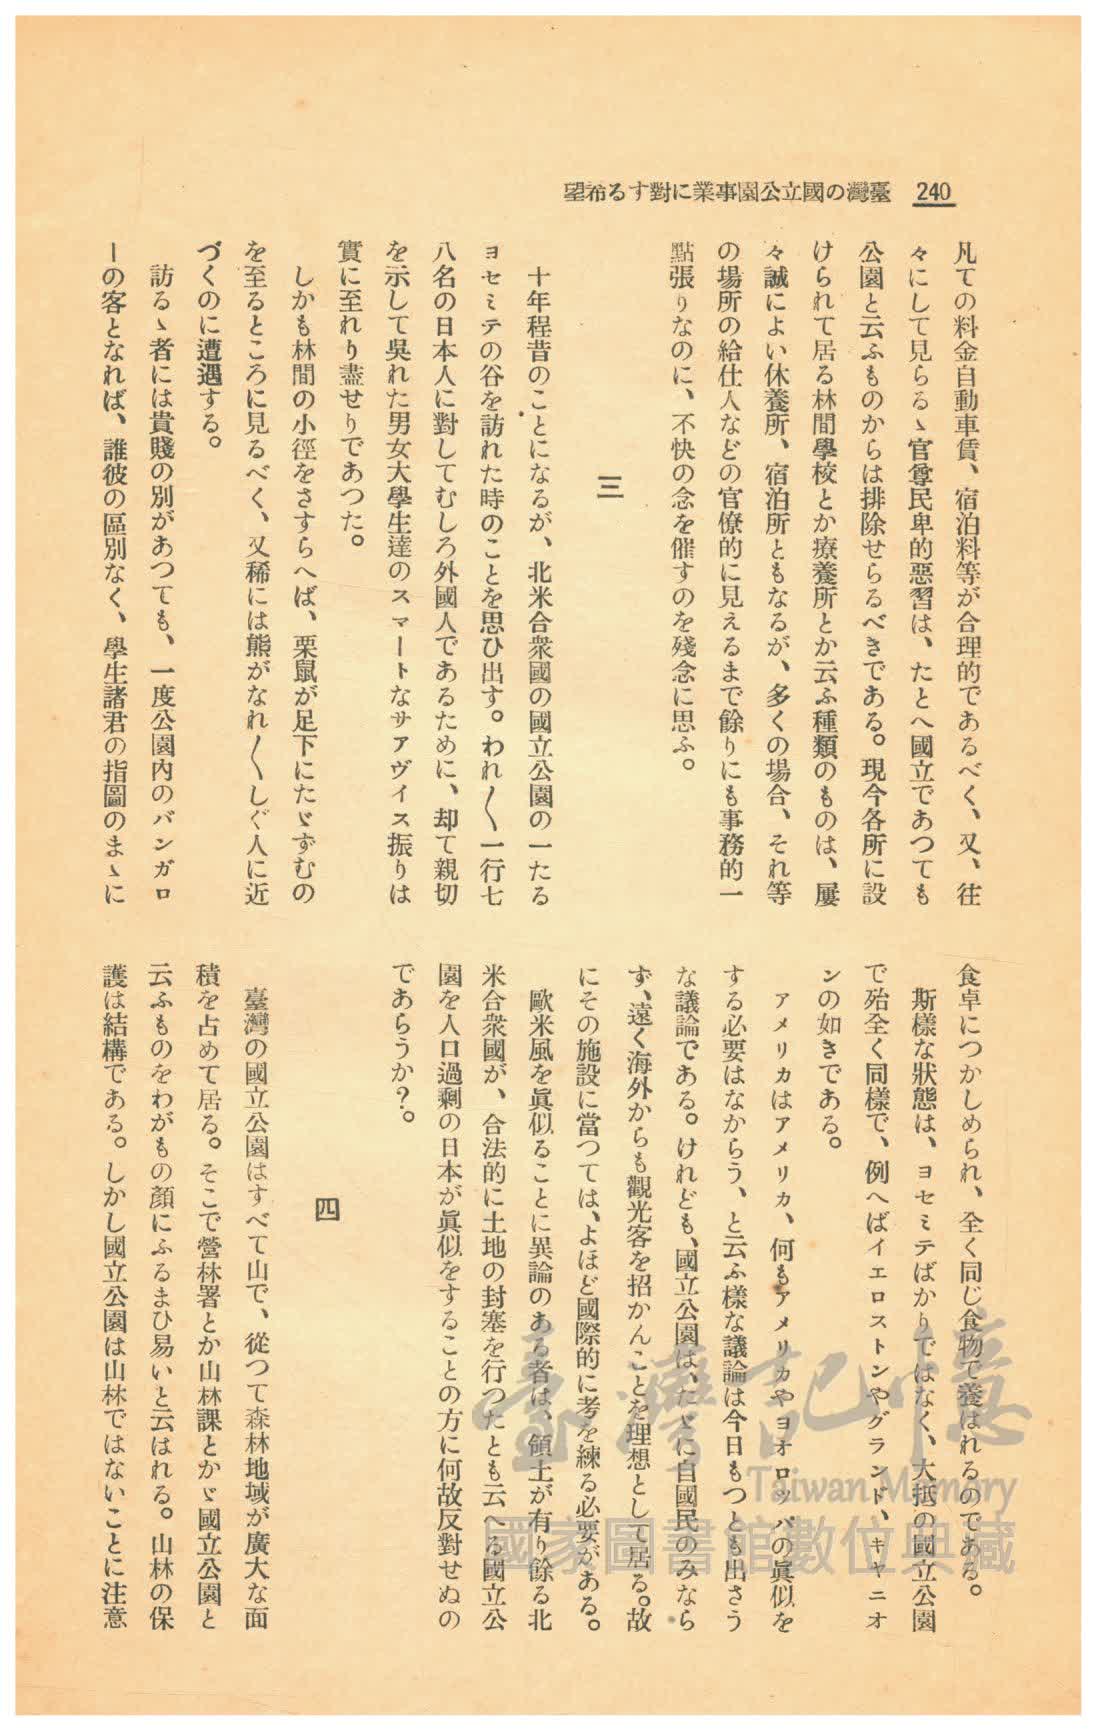 240
臺灣の國立公園事業に對する希望
凡ての料金自動車賃、宿泊料等が合理的であるべく、又、往
々にして見らるゝ官尊民卑的惡習は、たとへ國立であつても
公園と云ふものからは排除せらるべきである。現今各所に設
けられて居る林間學校とか療養所とか云ふ種類のものは、屢
々誠によい休養所、宿泊所ともなるが、多くの場合、それ等
の場所の給仕人などの官僚的に見えるまで餘りにも事務的一
點張りなのに、不快の念を催すのを殘念に思ふ。
三
十年程昔のことになるが、北米合衆國の國立公園の一たる
ヨセミテの谷を訪れた時のことを思ひ出す。われ〳〵一行七
八名の日本人に對してむしろ外國人であるために、却て親切
を示して吳れた男女大學生達のスマートなサアヴイス振りは
實に至れり盡せりであつた。
しかも林間の小徑をさすらへば、栗鼠が足下にたゞずむの
を至るところに見るべく、又稀には熊がなれ〳〵しぐ人に近
づくのに遭遇する。
訪るゝ者には貴賤の別があつても、一度公園內のバンガロ
ーの客となれば、誰彼の區別なく、學生諸君の指圖のまゝに
食卓につかしめられ、全く同じ食物で養はれるのである。
斯樣な狀態は、ヨセミテばかりではなく、大抵の國立公園
で殆全く同樣で、例へばイエロストンやグランド、キヤニオ
ンの如きである。
アメリカはアメリカ、何もアメリカやヨオロッパの眞似を
する必要はなからう、と云ふ樣な議論は今日もつとも出さう
な議論である。けれども、國立公園は、たゞに自國民のみなら
ず、遠く海外からも觀光客を招かんことを理想として居る。故
にその施設に當つては、よほど國際的に考を練る必要がある。
歐米風を眞似ることに異論のある者は、領土が有り餘る北
米合衆國が、合法的に土地の封塞を行つたとも云へる國立公
園を人口過剩の日本が眞似をすることの方に何故反對せぬの
であらうか?。
四
臺灣の國立公園はすべて山で、從つて森林地域が廣大な面
積を占めて居る。そこで營林署とか山林課とかゞ國立公園と
云ふものをわがもの顏にふるまひ易いと云はれる。山林の保
護は結構である。しかし國立公園は山林ではないことに注意
臺灣記憶
Taiwan Memory
國家圖書館數位典藏